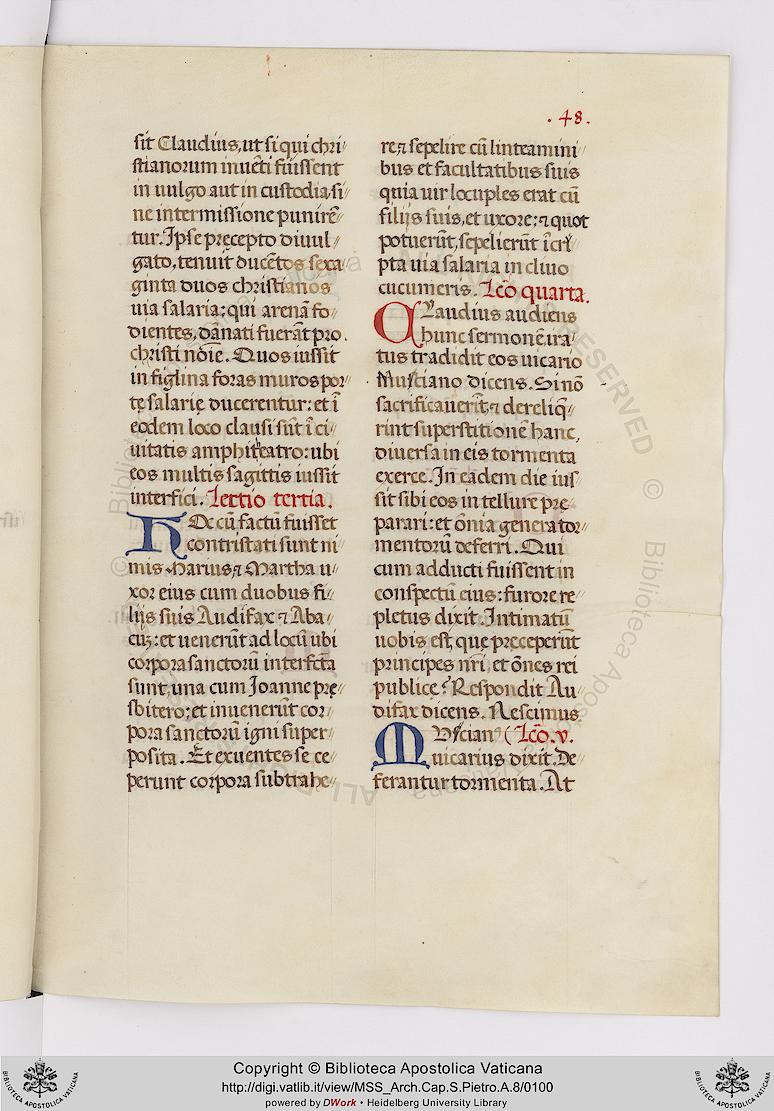 .48.
sit Claudius, ut si qui chri
stianorum inuēti fuissent
in uulgo aut in custodia·si/
ne intermissione punirē/
tur. Ipse pręcepto diuul/
gato, tenuit ducētos sexa
ginta duos christianos
uia salaria: qui arenā fo/
dientes, dānati fuerāt pro.
christi nōie. Quos iussit
in figlina foras muros por/
tę salarię ducerentur: et ī
eodem loco clausi sūt ī ci/
uitatis amphiteatro: ubi
eos multis sagittis iussit
interfici. Lectio tertia.
HDe cū factū fuisset
contristati sunt ni/
mis Marius, ⁊ Martha u/
xor eius cum duobus fi/
liis suis Audifax ⁊ Aba/
cuꝫ: et uenerūt ad locū ubi
corpora sanctorū interfc̄ta
sunt, una cum Joanne prę/
sbitero: et inuenerūt cor/
pora sanctorū igni super/
posita. Et exuentes se ce/
perunt corpora subtrahe/
re, ⁊ sepelire cū linteamini/
bus et facultatibus suis
quia uir locuples erat cū
filijs suis, et uxore: ⁊ quot
potuerūt, sepelierūt ī cri
pta uia salaria in cliuo
cucumeris. Lc̄o quarta.
CLaudius audiens
hunc sermonē ira/
tus tradidit eos uicario
Musciano dicens. Si nō
sacrificauerīt, ⁊ dereliq̄/
rint superstitionē hanc,
diuersa in eis tormenta
exerce. In eadem die ius/
sit sibi eos in tellure prę/
parari: et ōnia generator/
mentorū deferri. Qui
cum adducti fuissent in
conspectū eius: furore re/
pletus dixit. Intimatū
uobis est, quę pręceperūt
principes nr̄i, et ōnes rei
publice? Respondit Au/
difax dicens. Nescimus
MUscianꝰ (Lc̄o. v.
uicarius dixit. De/
ferantur tormenta. At
Copyright © Biblioteca Apostolica Vaticana
http://digi.vatlib.it/view/MSS_Arch.Cap.S.Pietro.A.8/0100
powered by DWork • Heidelberg University Library